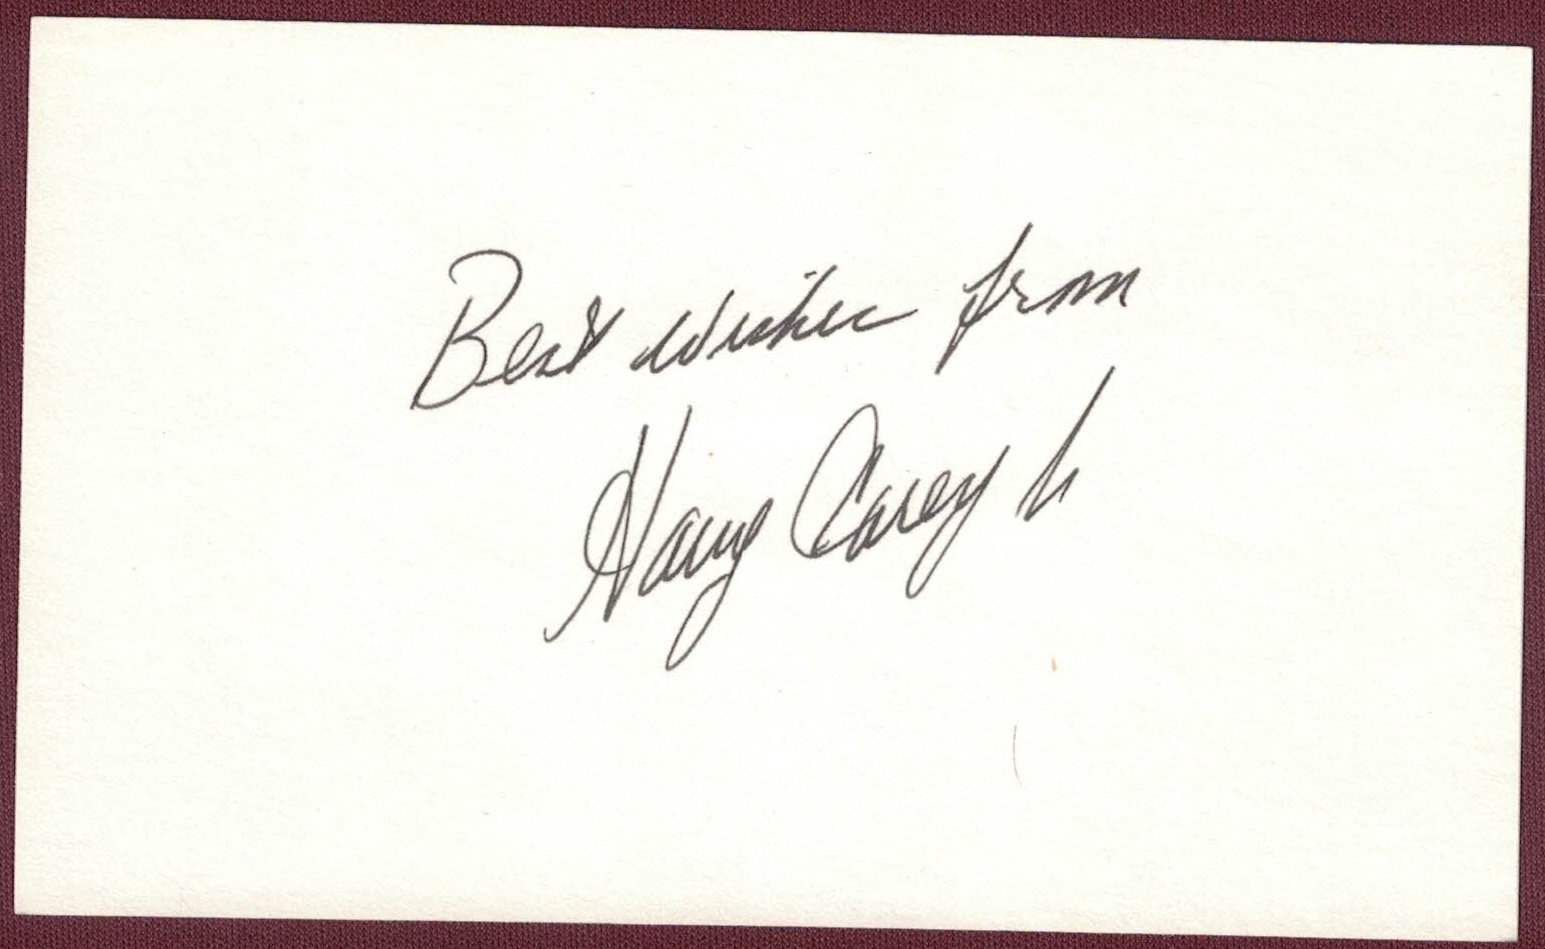 Best wishes from
Harry Carey Jr